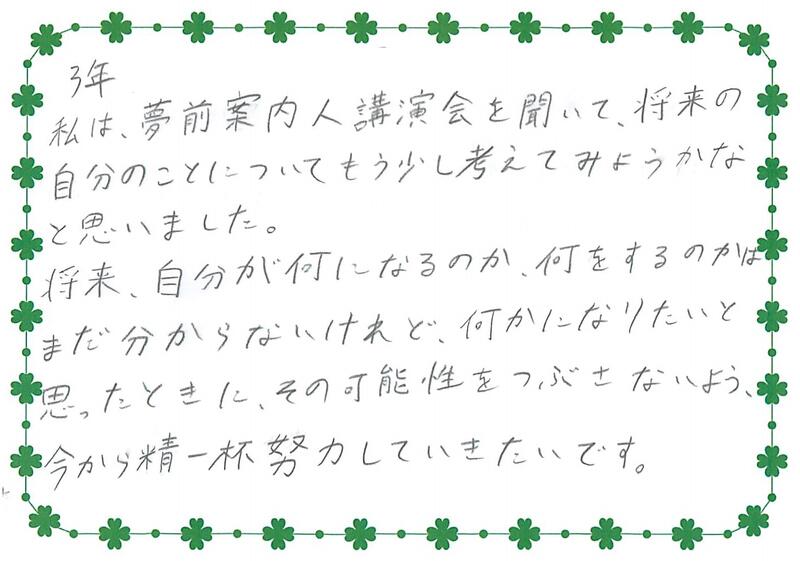 3年
私は、夢前案内人講演会を聞いて、将来の
自分のことについてもう少し考えてみようかな
と思いました。
将来、自分が何になるのか、何をするのかは
まだ分からないけれど、何かになりたいと
思ったときに、その可能性をつぶさないよう、
今から精一杯努力していきたいです。